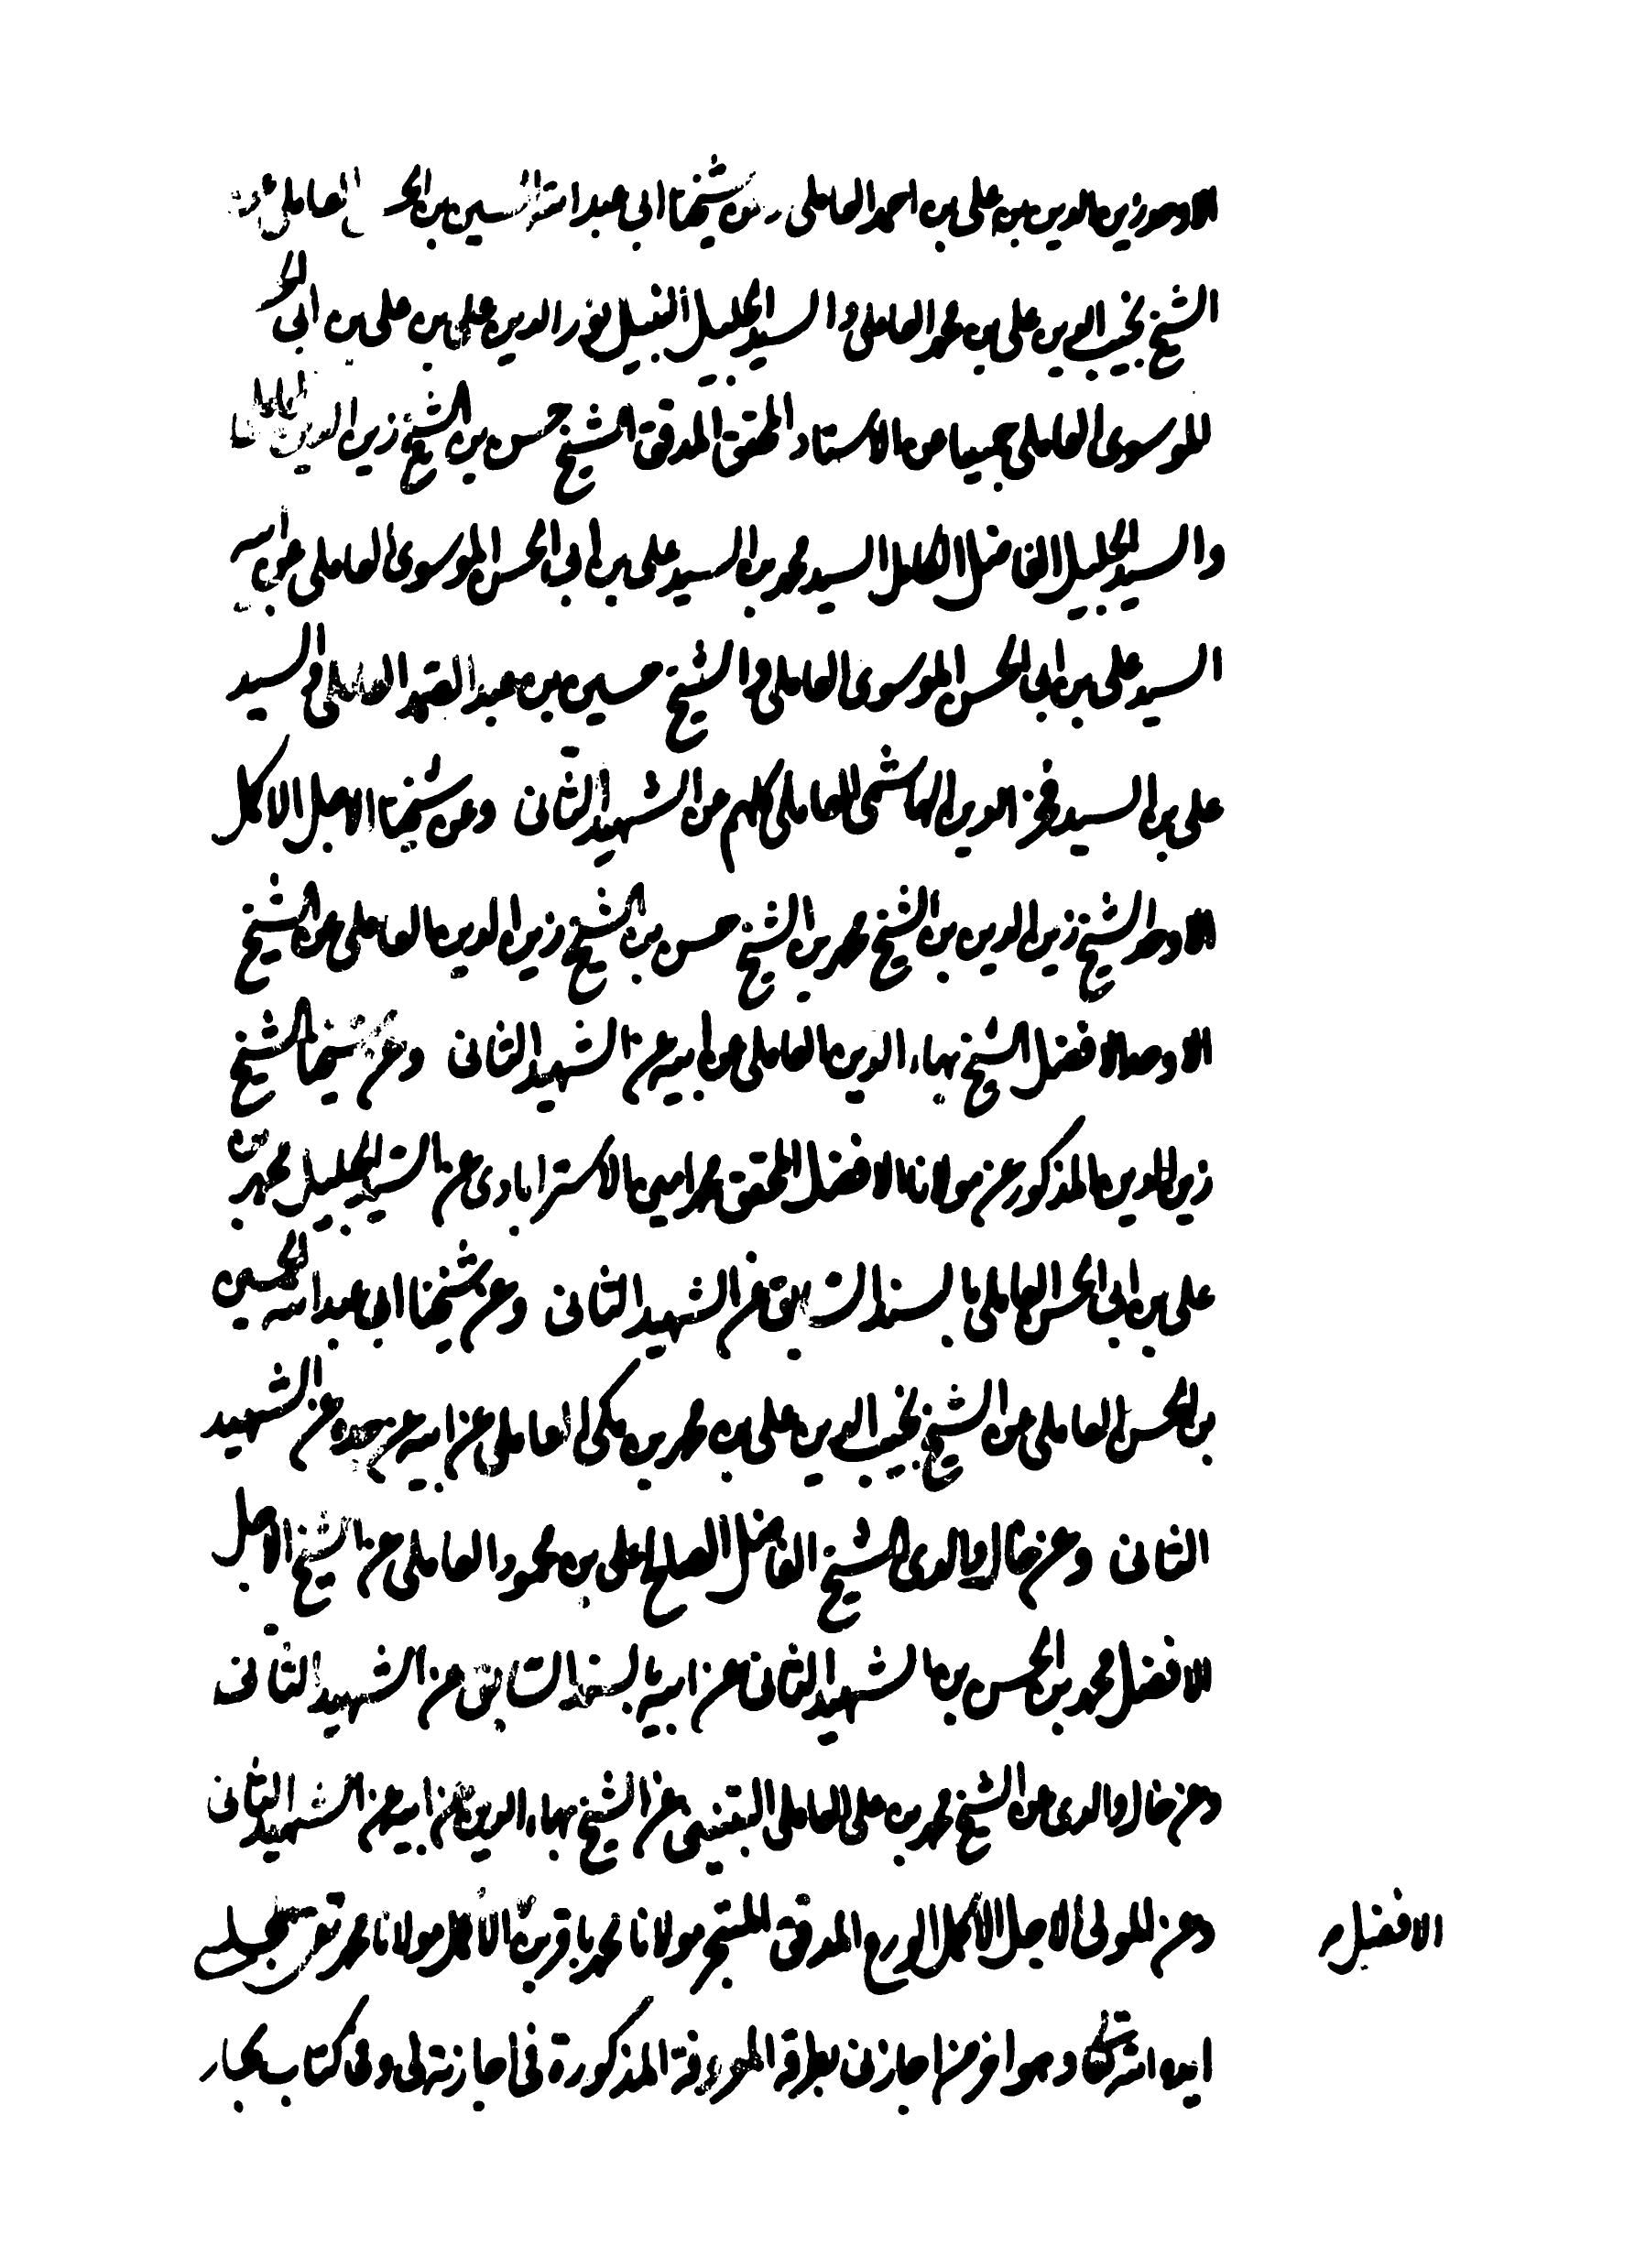 الاوحد زين الدين بن علي بن احمد العاملي عن شيخنا ابي عبد الله الحسين بن الحسن العاملي عن
الشيخ نجيب الدين علي بن محمد العاملي و السيد الجليل النبيل نور الدين علي بن علي بن ابي الحسن
الموسوى العاملي جميعا عن الاستاد المحقق المدقق الشيخ حسن بن الشيخ زين الدين العاملي
والسيد الجليل الفاضل الكامل السيد محمد بن السيد علي بن ابي الحسن الموسوى العاملي عن ابيه
السيد علي بن ابي الحسن الموسوى العاملي و الشيخ حسين بن عبد الصمد العاملي و السيد
علي بن السيد فخر الدين الهاشمي العاملي كلهم عن الشهيد الثاني وعن شيخنا الاجل الاكمل
الاوحد الشيخ زين الدين بن الشيخ محمد بن الشيخ حسن بن الشيخ زين الدين العاملي عن الشيخ
الاوحد الافضل الشيخ بهاء الدين العاملي عن ابيه عن الشهيد الثاني وعن شيخنا الشيخ
زين الدين المذكور عن مولانا الافضل المحقق محمد امين الاسترابادى عن السيد الجليل محمد بن
علي بن ابي الحسن العاملي بالسند السابق عن الشهيد الثاني وعن شيخنا ابي عبد الله الحسين
بن الحسن العاملي عن الشيخ نجيب الدين علي بن محمد بن مكي العاملي عن ابيه عن جده عن الشهيد
الثاني وعن خال والدى الشيخ الفاضل الصالح علي بن محمود العاملي عن الشيخ الاجل
الافضل محمد بن الحسن بن الشهيد الثاني عن ابيه بالسند السابق عن الشهيد الثاني
وعن خال والدى عن الشيخ محمد بن علي العاملي التبنيني عن الشيخ بهاء الدين عن ابيه عن الشهيد الثاني
وعن المولى الاجل الاكمل الورع المدقق المتبحر مولانا محمد باقر بن الاكمل مولانا محمد تقي المجلسي
الافضل
ايده الله تعالى وهو اخر من اجازني بطرقه المعروفة المذكورة في اجازته لي وفي كتاب بحار